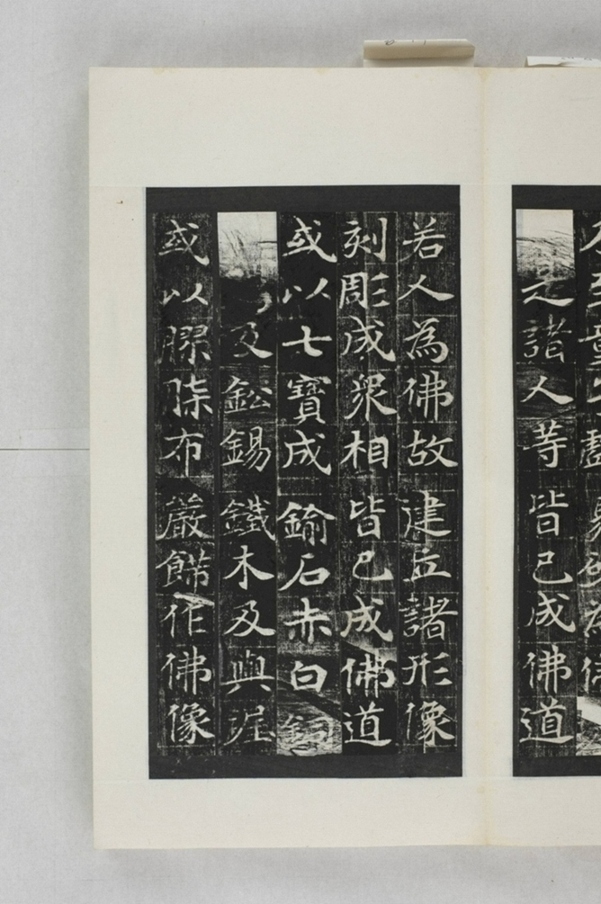 至童子戲聚沙為佛
諸人等皆已成佛道
若人為佛故建立諸形像
刻彫成衆相皆已成佛道
或以七寶成鍮石赤白銅
及鈆錫鐵木及與泥
或以膠漆布嚴飾作佛像